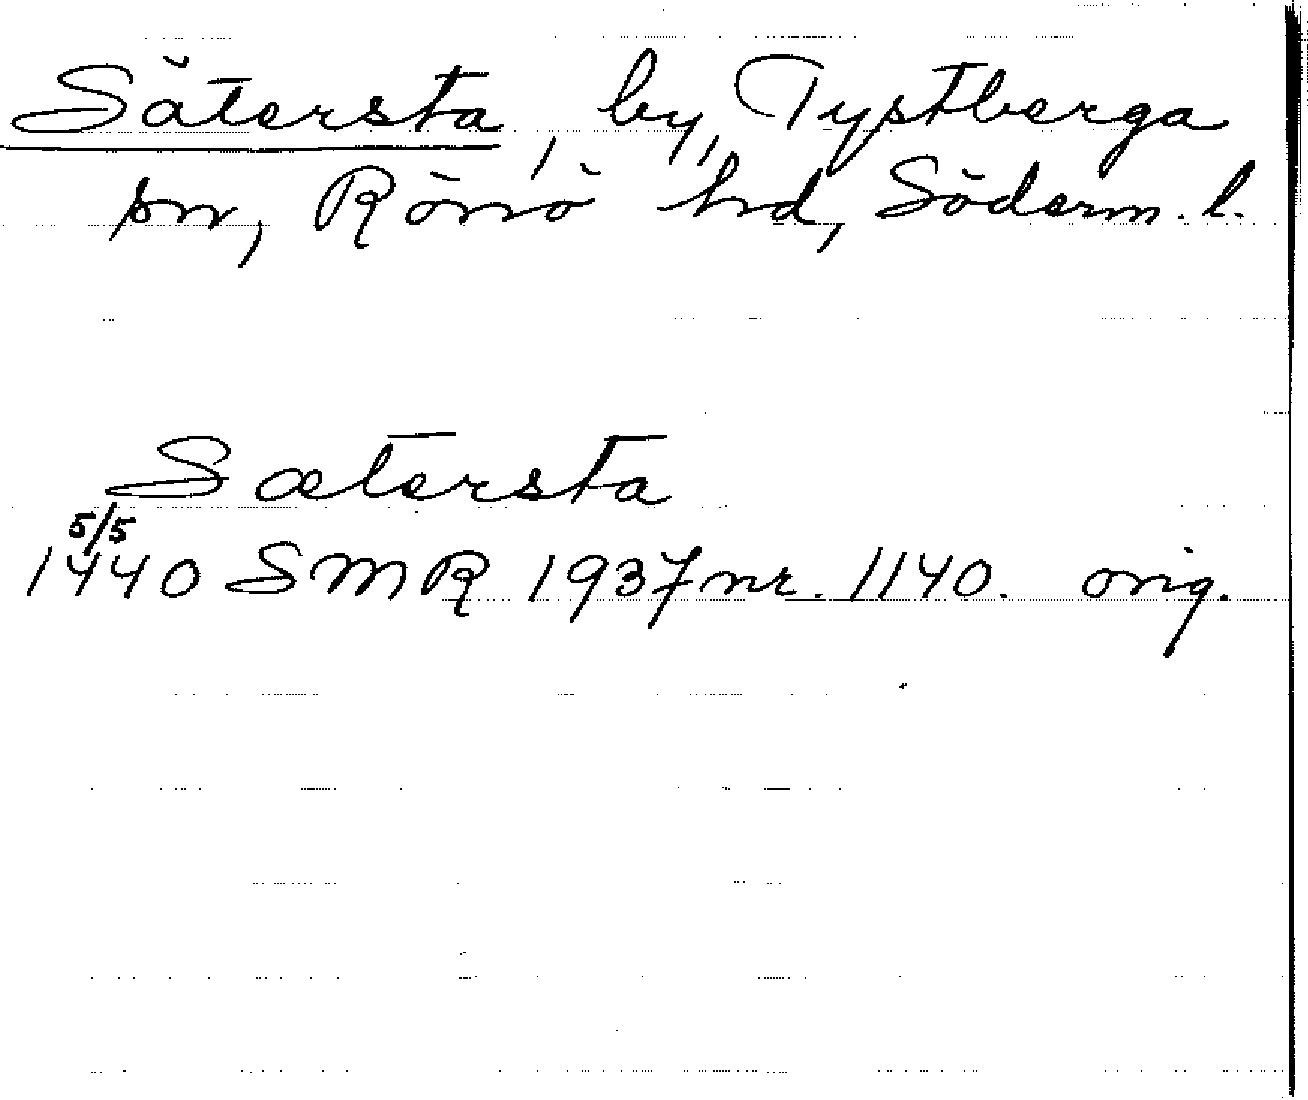 Sätersta, by, Tystberga
sn, Rönö hd, Söderm. l.
Sætersta
5/5
1440 SMR 1937 nr. 1140. orig.